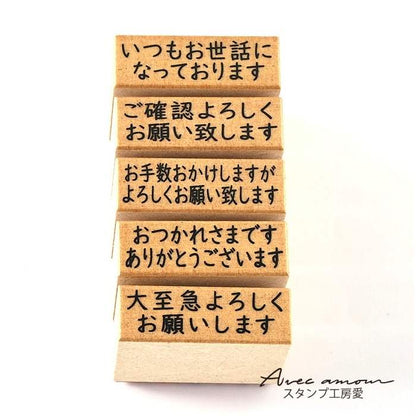 いつもお世話に
なっております
ご確認よろしく
お願い致します
お手数おかけしますが
よろしくお願い致します
おつかれさまです
ありがとうございます
大至急よろしく
お願いします
Avec amour
スタンプ工房愛